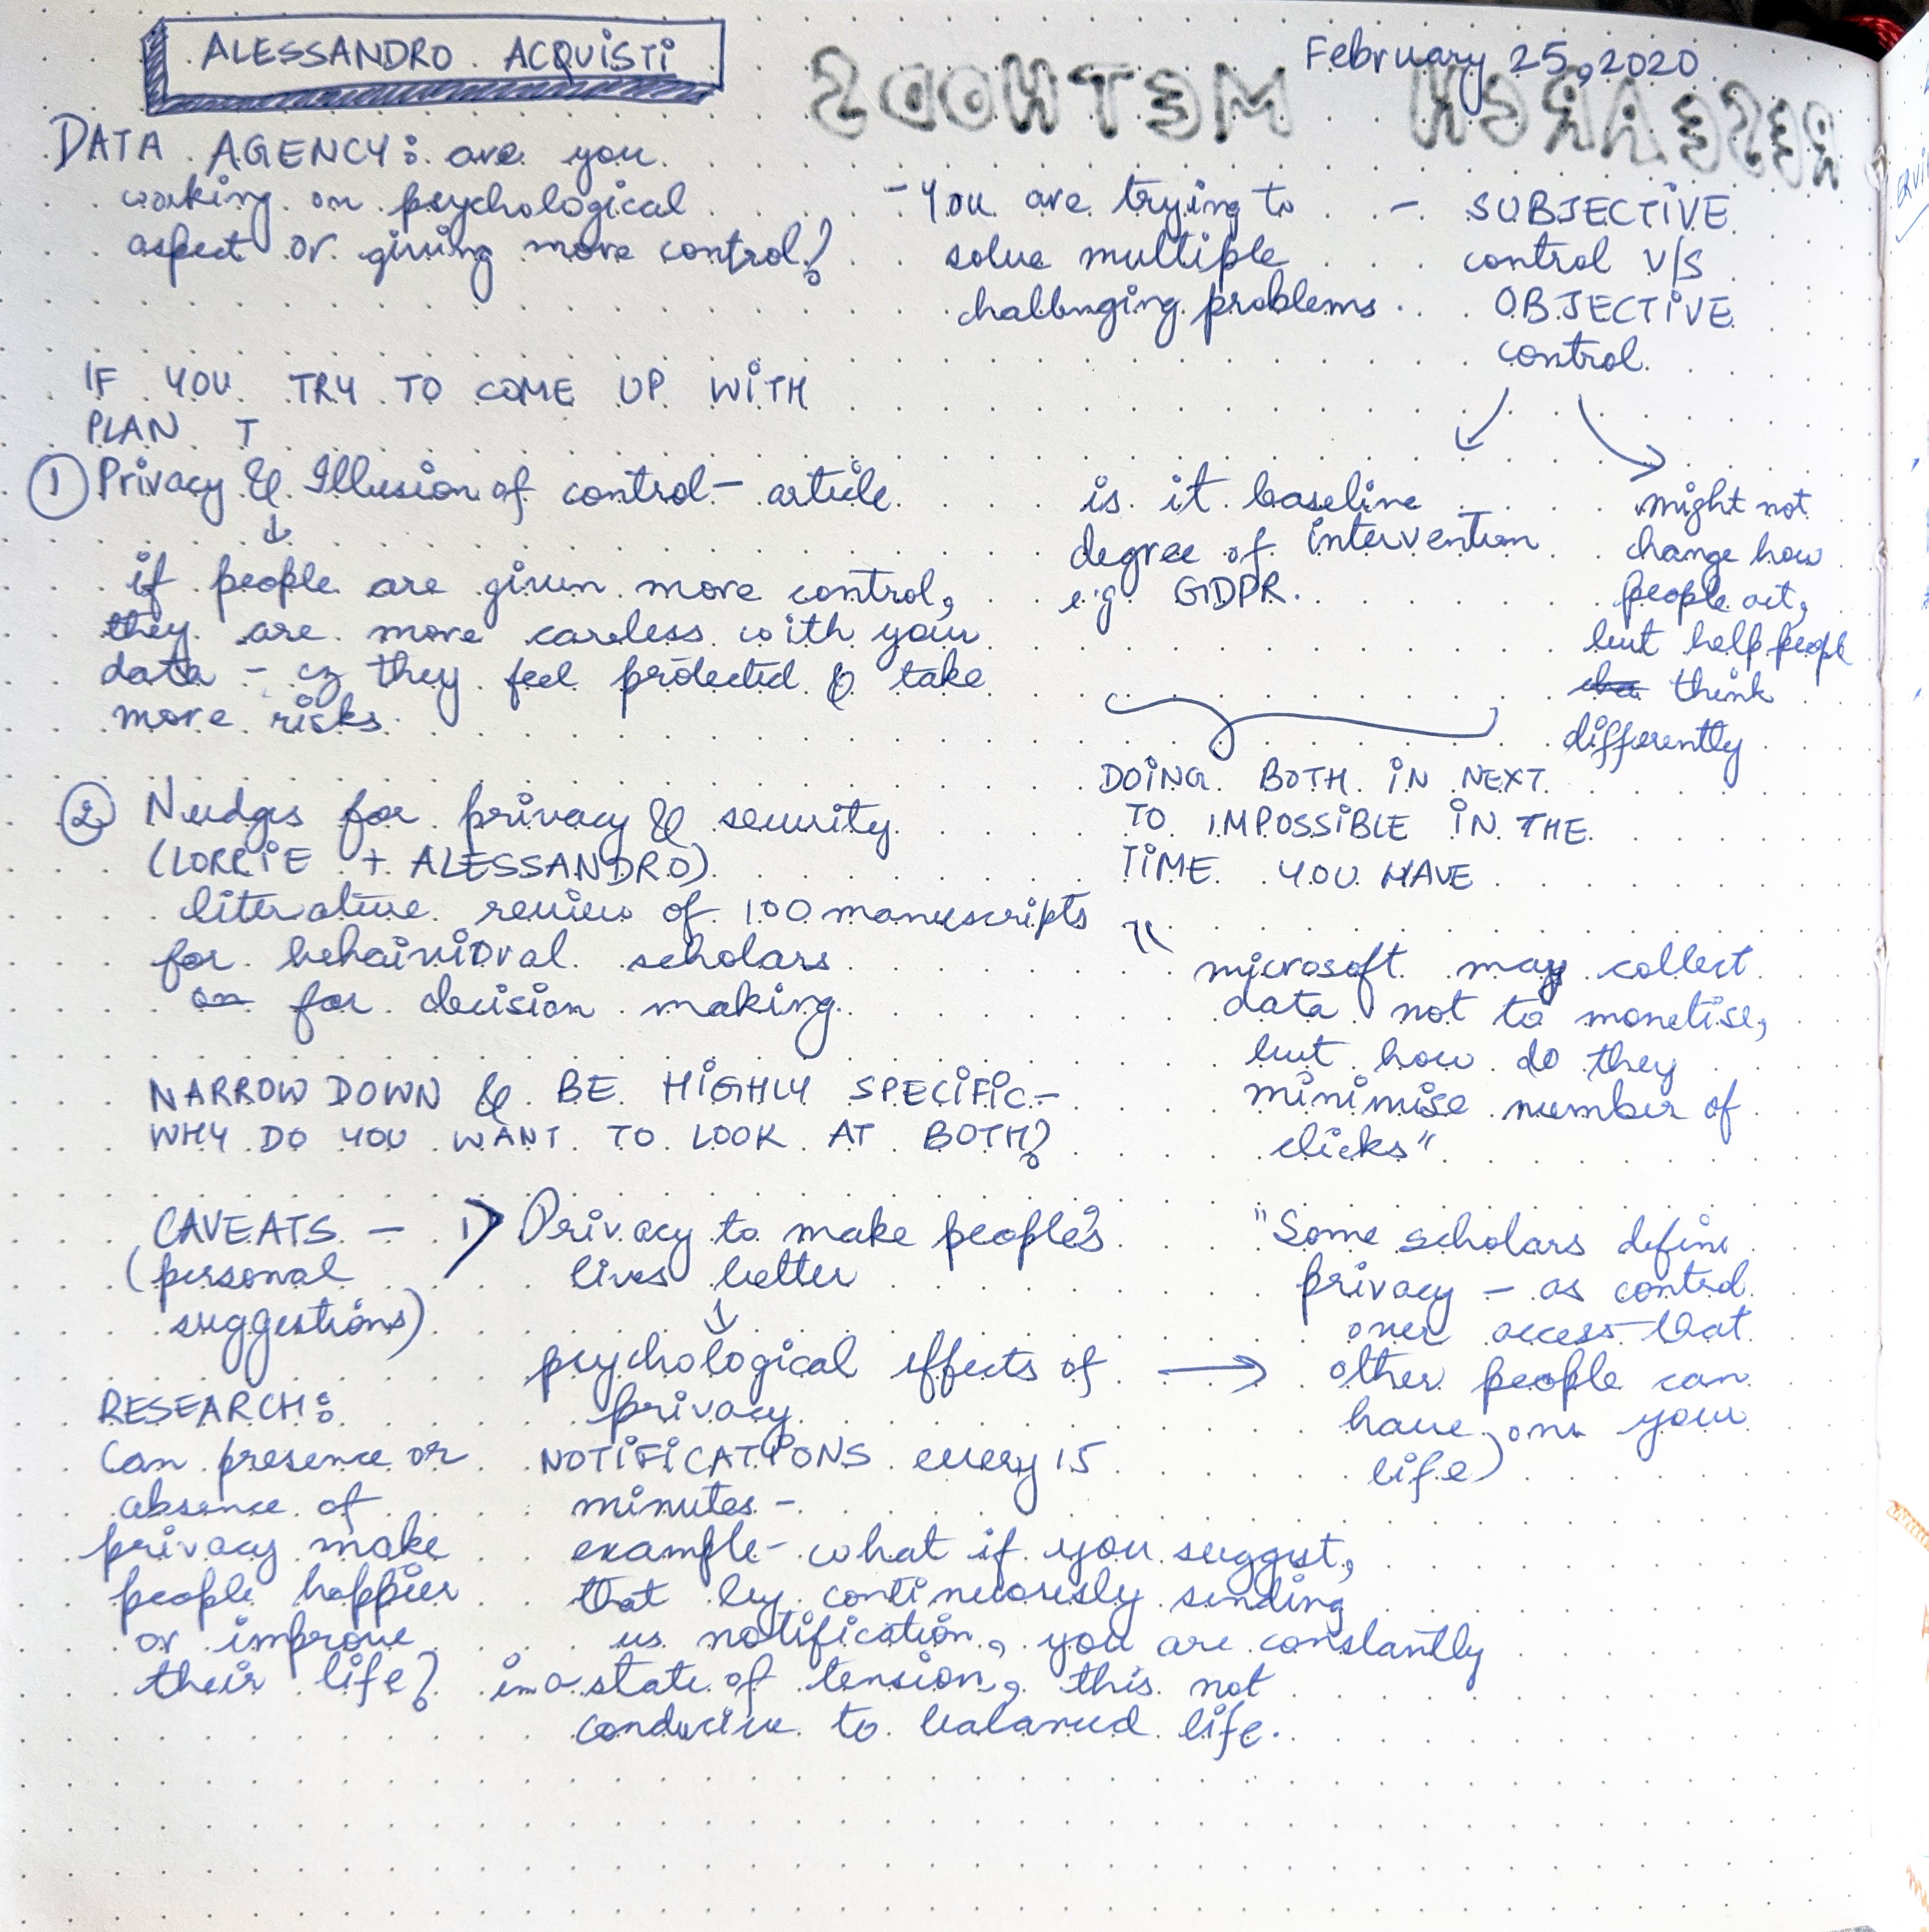 ALESSANDRO ACQUISTI
February 25, 2020
RESEARCH METHODS
DATA AGENCY: are you
working on psychological
aspect or giving more control?
- You are trying to
solve multiple
challenging problems
- SUBJECTIVE
control v/s
OBJECTIVE
control
IF YOU TRY TO COME UP WITH
PLAN T
① Privacy & Illusion of control - article
↓
if people are given more control,
they are more careless with your
data - cz they feel protected & take
more risks.
is it baseline
degree of intervention
e.g GDPR.
might not
change how
people act,
but help peopl
think
differently
DOING BOTH IN NEXT
TO IMPOSSIBLE IN THE
TIME YOU HAVE
② Nudges for privacy & security
(LORRIE + ALESSANDRO)
literative review of 100 manuscripts
for behaivioral scholars
on for decision making
"microsoft may collect
data not to monetise,
but how do they
minimise number of
clicks"
NARROW DOWN & BE HIGHLY SPECIFIC -
WHY DO YOU WANT TO LOOK AT BOTH?
CAVEATS -
(personal
suggestions)
1) Privacy to make people's
lives better
↓
psychological effects of →
privacy
NOTIFICATIONS every 15
minutes -
example - what if you suggest,
that by continuously sending
us notification, you are constantly
in a state of tension, this not
conducive to balanced life.
"Some scholars define
privacy - as control
over access that
other people can
have on your
life)
RESEARCH:
Can presence or
absence of
privacy make
people happier
or improve
their life?